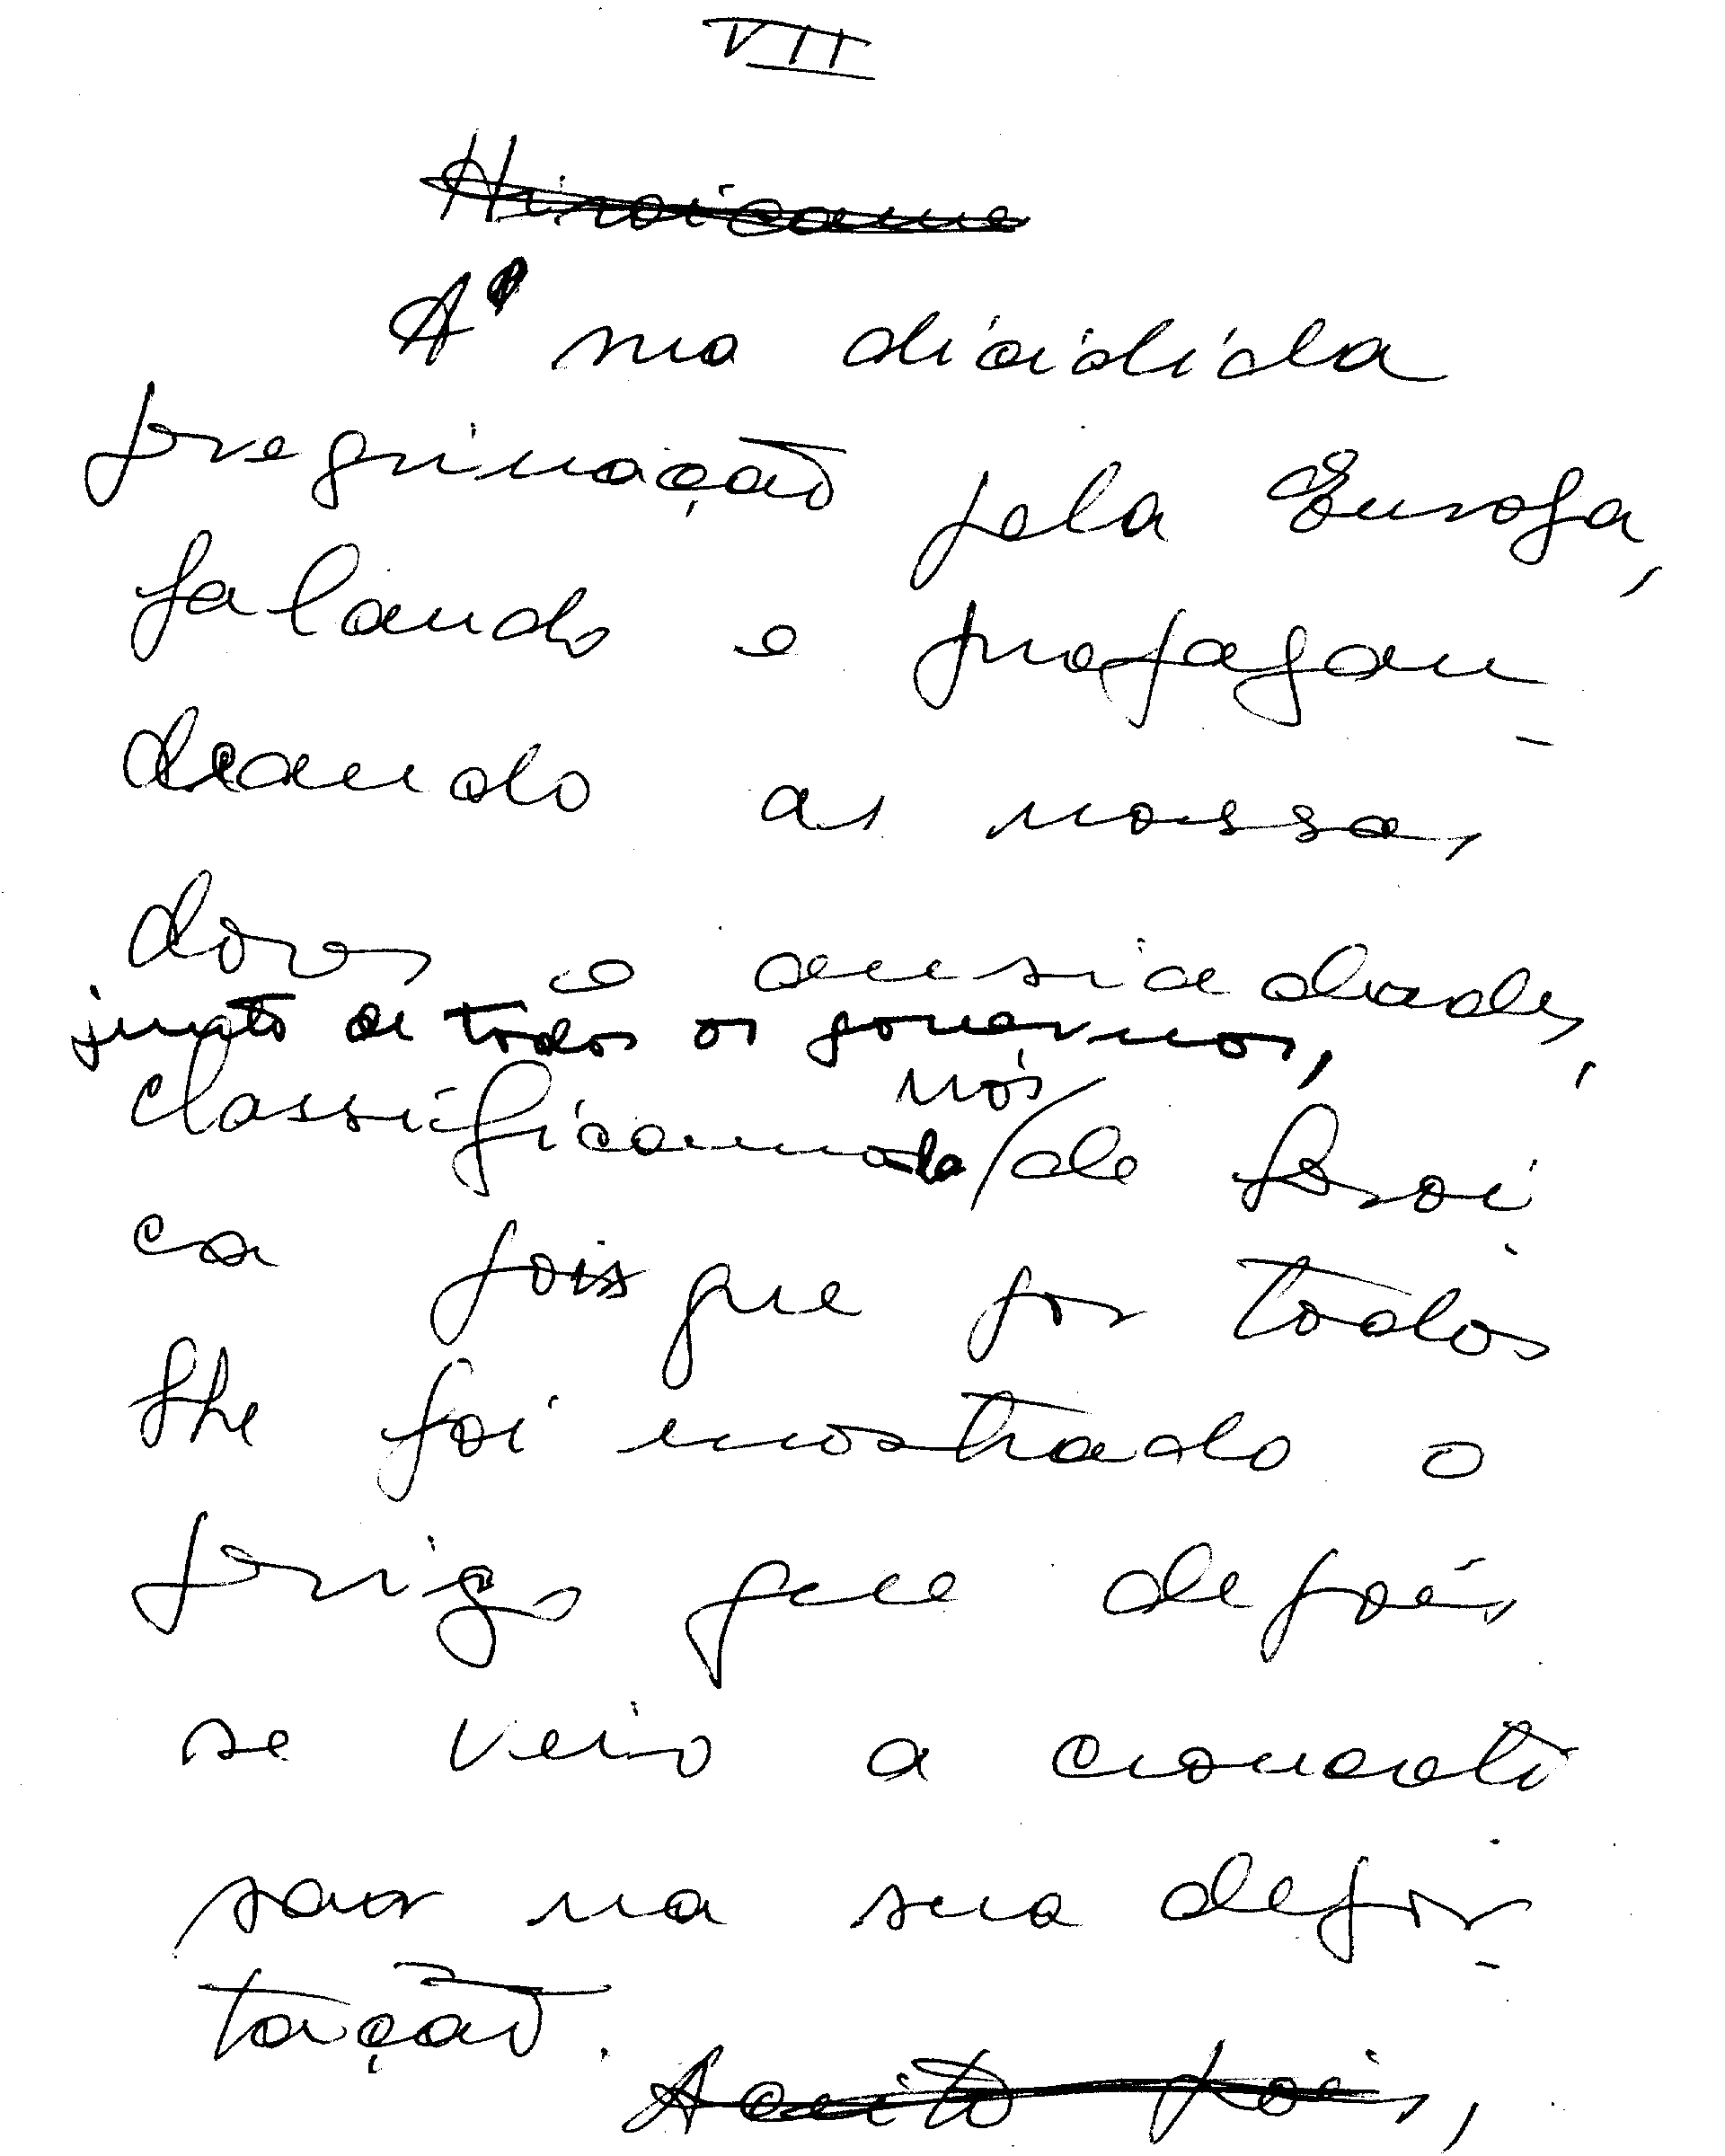 VII
Hiroicame
A' sua dicidida
preguinação pela Europa,
falando e propagan-
deando as nossas
dores e ansiedades,
junto de todos os governos,
nós
classificamo-la de heroi-
ca pois que por todos
lhe foi mostrado o
perigo que depois
se veio a concreti-
sar na sua depor-
tação. Aceito pois,